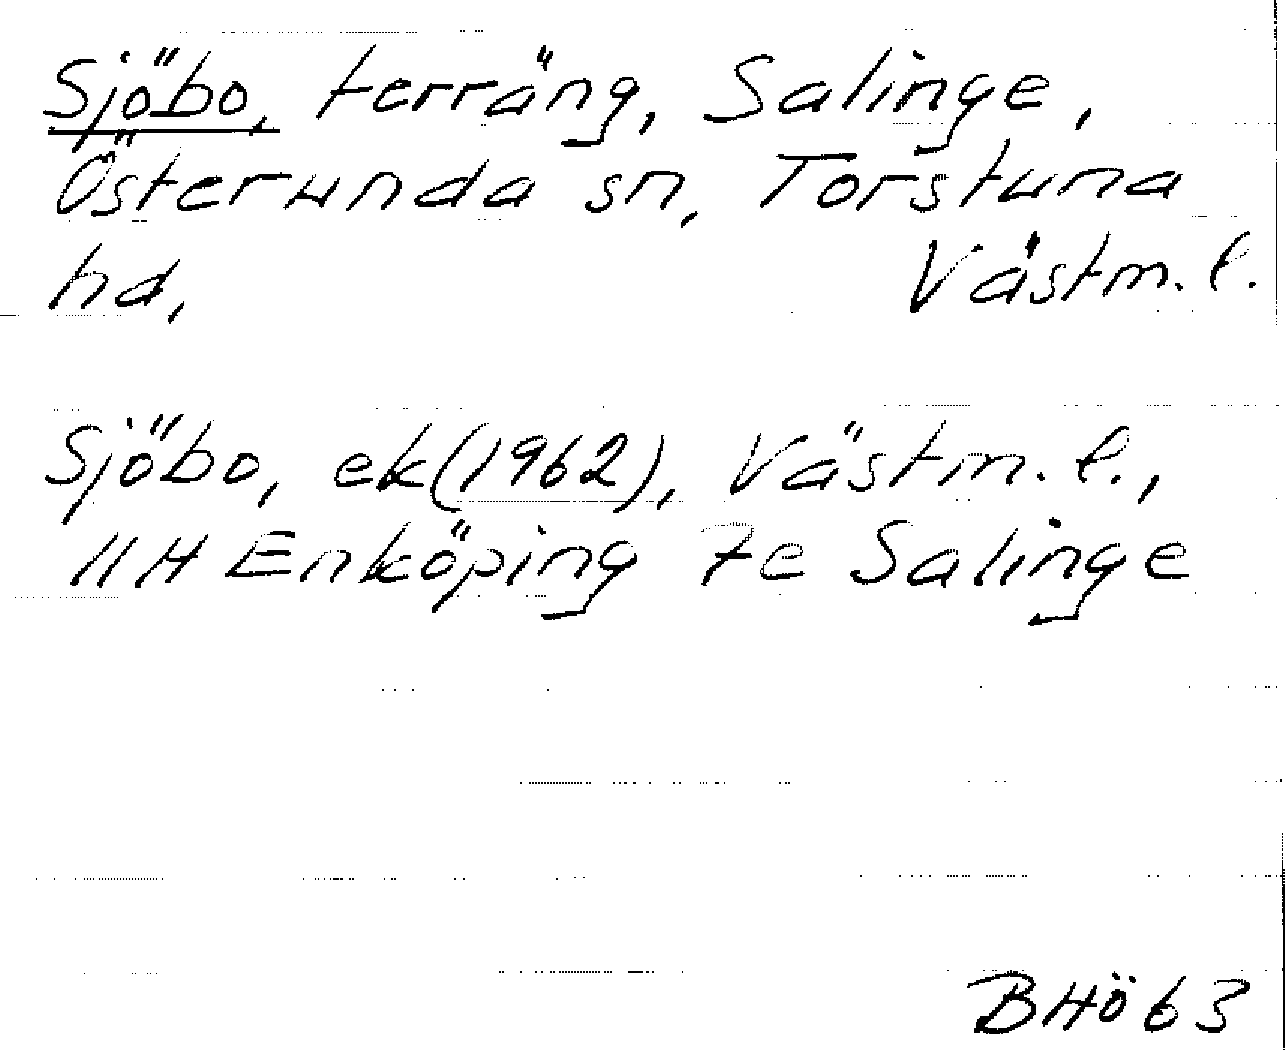 Sjöbo, terräng, Salinge,
Österunda sn, Torstuna
hd, Västm. l.
Sjöbo, ek(1962), Västm. l.,
11H Enköping 7e Salinge
BHö 63